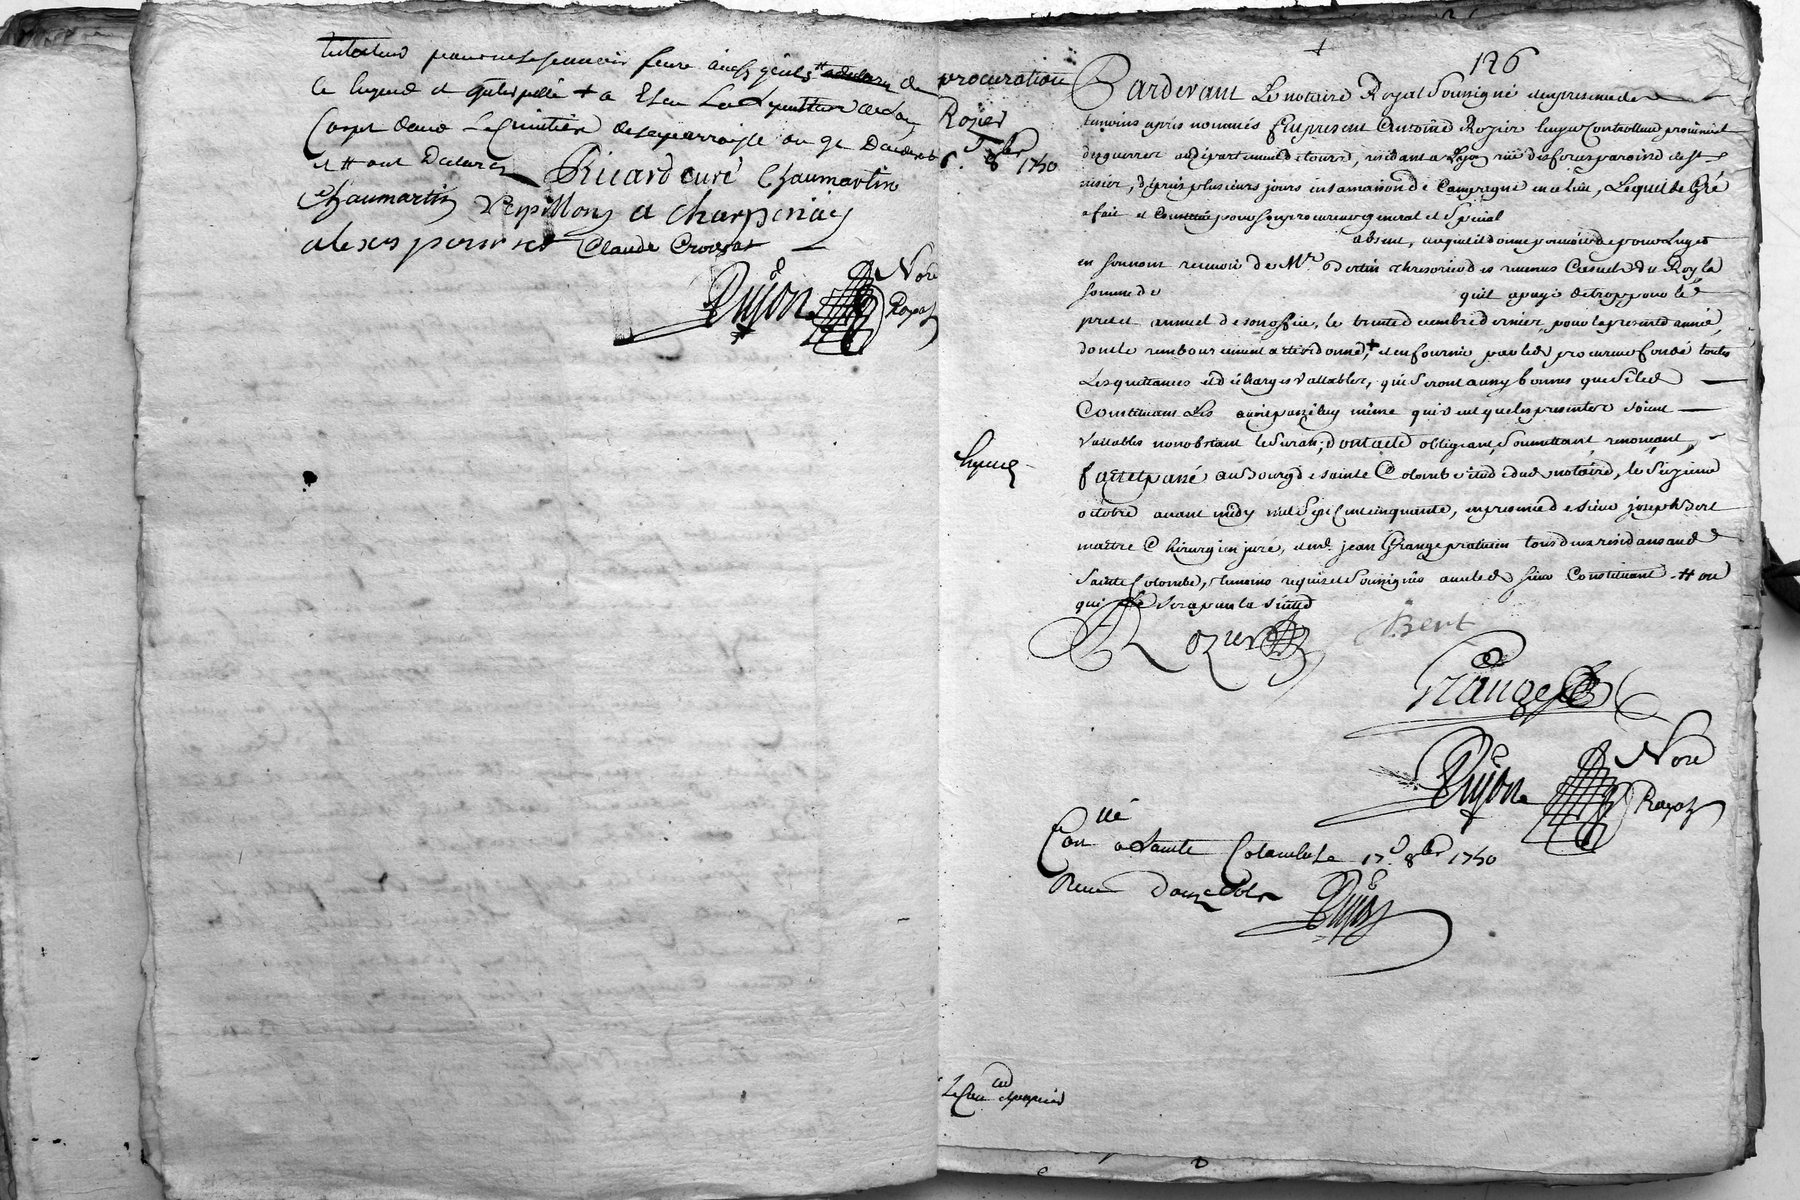 ce
Corps dans le Cimetiere de sa parroisse
et ont Declaré
Ricard curé Chaumartin
Chaumartin Verpillon a charpenay
alexis perrinet Claude Crozat
Dujon Nore
Royal
126
procuration
Rozier
8bre 1750
Pardevant Le notaire Royal Soussigné et en presence des
temoins après nommés fut present antoine Rozier Ecuyer Controlleur provincial
des guerres au departement de tours, residant a Lyon rue des forces paroisse de st
nisier, depuis plusieurs jours en sa maison de Campagne en ce lieu, Lequel de Gré
a fait et Constitué pour son procureur general et Special
absent, auquel il donne pouvoir de pour luy et
en son nom recevoir de Mr. Bertin thresorier des revenus Casuels du Roy la
somme de qu'il a payé de trop pour le
prest et annuel de son office, le trente decembre dernier, pour la presente année,
dont le remboursement a eté ordonné, et en fournir par led procureur fondé toutes
Les quittances et décharges vallables, qui seront aussy bonnes que si led
Constituant Les avoit passé luy même qui veut que les presentes soient
Vallables nonobstant le Suran; dont acte obligeant, Soumettant, renonçant,
fait et passé au Bourg de sainte Colombe etude du notaire, le Seizieme
octobre avant midy mil Sept Cent cinquante, en presence de sieur joseph Bert
maître Chirurgien juré, et me. jean Grange praticien tous deux residans aud
Sainte Colombe, temoins requis et Soussignés avec led sieur Constituant ou
qui le sera par la suitte
Rozier Bert
Grange
Dujon Nore
Royal
Conllé a Sainte Colombe le 17e 8bre 1750
Receu Douze sols
Dujon